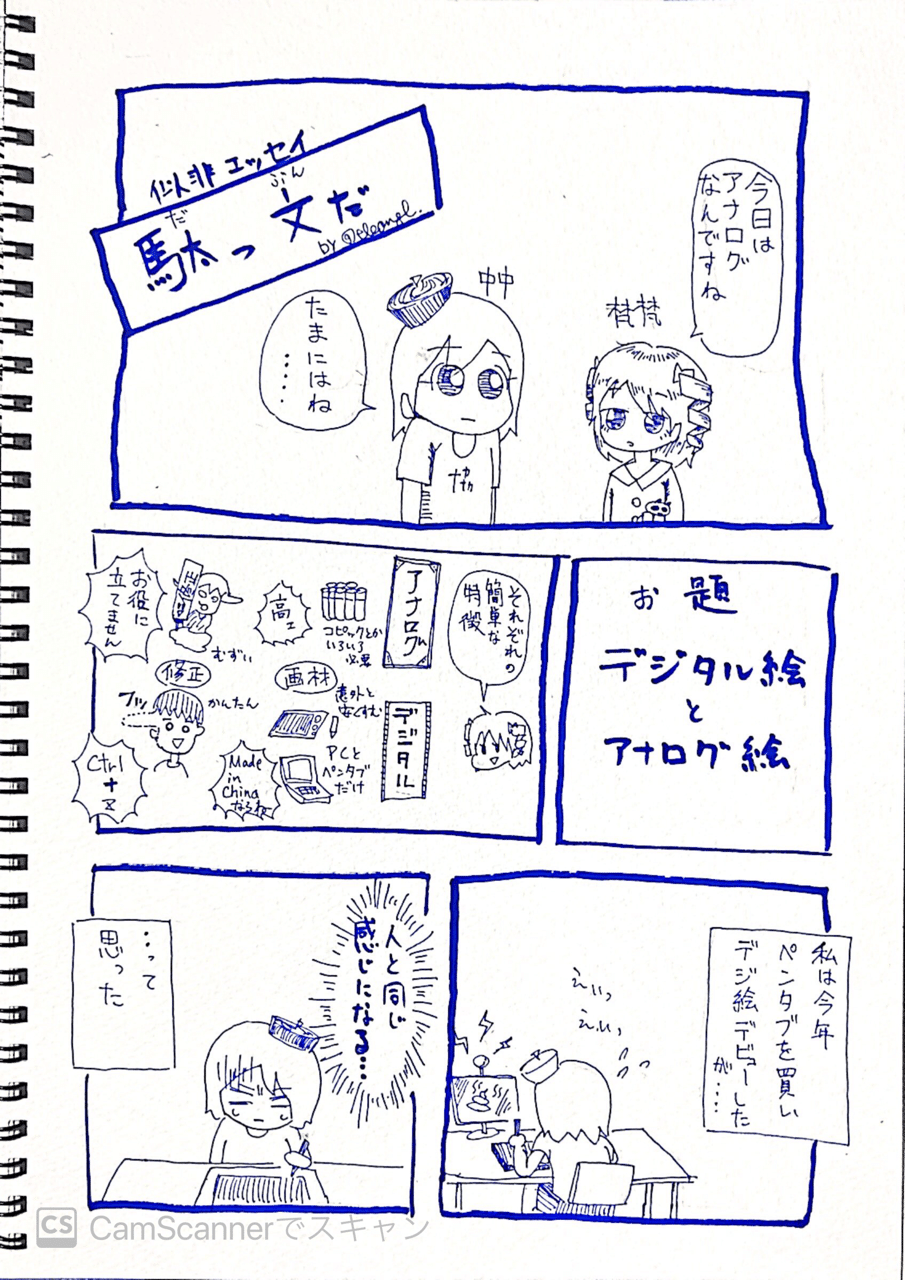 似非エッセイ
駄っ文だ
だ
ぶん
今日は
アナログ
なんですね
梵梵
中中
たまにはね
・・・・
お題
デジタル絵
と
アナログ絵
それぞれの
簡単な
特徴
アナログ
コピックとか
いろいろ
必要
高ェ
画材
むずい
お役に
立てません
修正
デジタル
意外と
安くすむ
PCと
ペンタブ
だけ
Made
in
China
ならね
かんたん
フッ
Ctrl
+
Z
私は今年
ペンタブを買い
デジ絵デビューした
が・・・・
えいっ
えいっ
人と同じ
感じになる…
…って
思った
CS CamScannerでスキャン